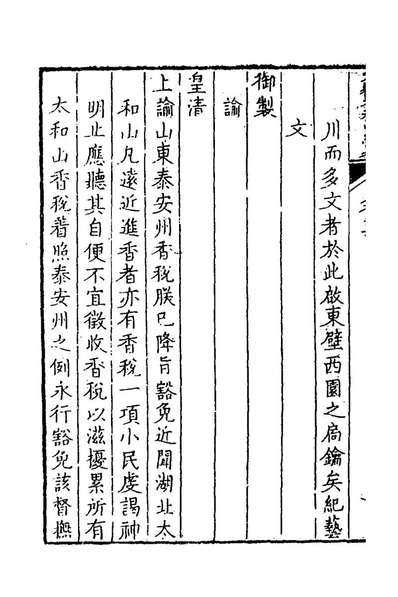 川而多文者於此啟東壁西園之扃鑰矣紀藝
文
御製
諭
皇清
上諭山東泰安州香稅朕已降旨豁免近聞湖北太
和山凡遠近進香者亦有香稅一項小民虔謁神
明止應聽其自便不宜徵收香稅以滋擾累所有
太和山香稅着照泰安州之例永行豁免該督撫